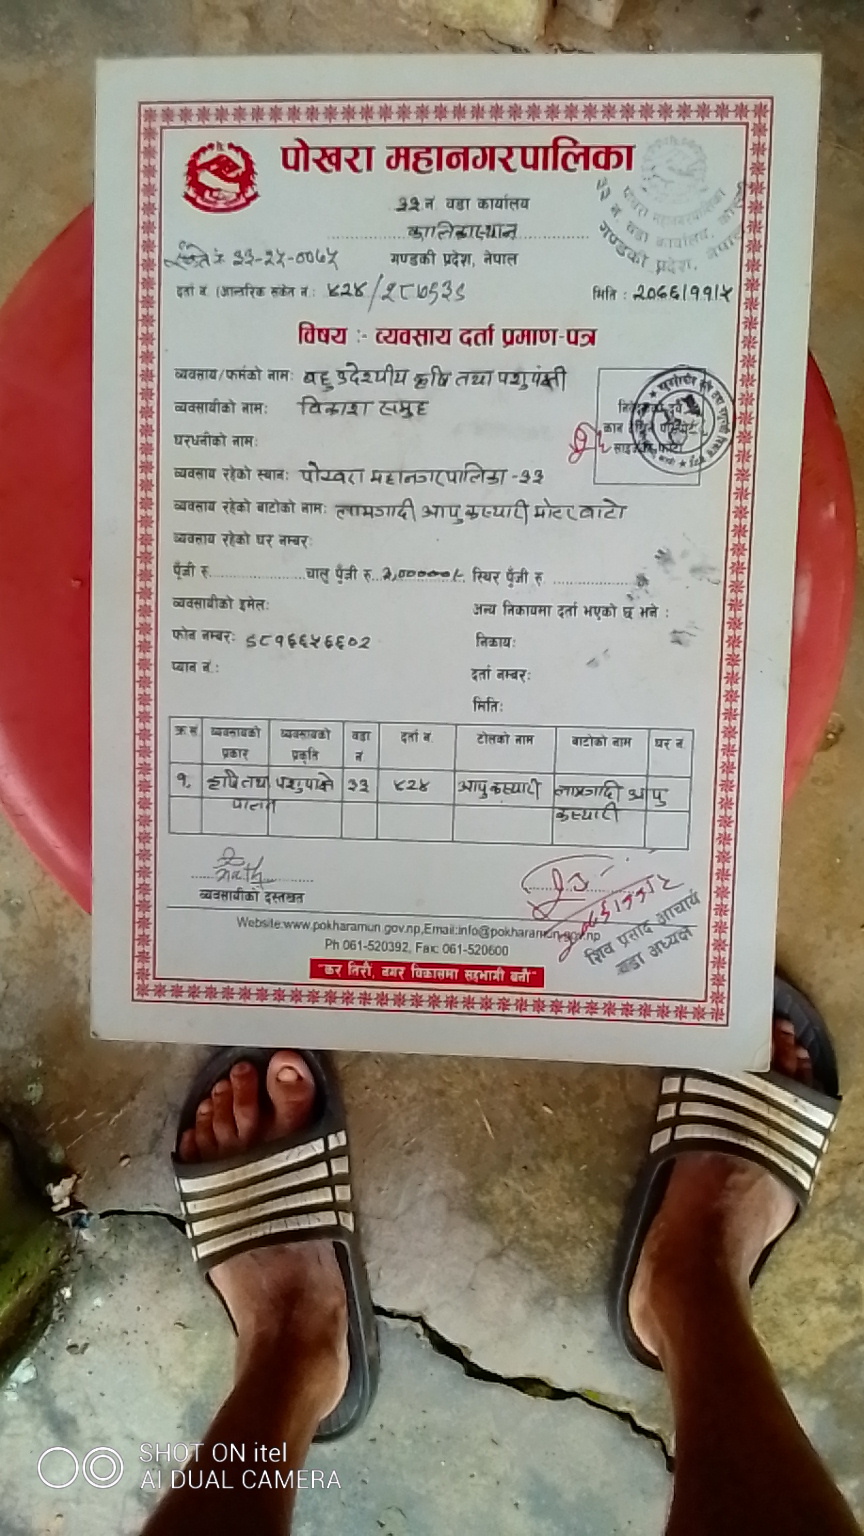 पोखरा महानगरपालिका
३३ नं. वडा कार्यालय
कालिकास्थान
गण्डकी प्रदेश, नेपाल
दर्ता नं. (आन्तरिक संकेत नं.: ४२४/२८७५३९
मिति : २०७७।११।५
विषय :- व्यवसाय दर्ता प्रमाण-पत्र
व्यवसाय/फर्मको नाम: बहु उदेश्यीय कृषि तथा पशुपंक्षी
व्यवसायीको नाम: विकाश समुह
घरधनीको नाम:
व्यवसाय रहेको स्थान: पोखरा महानगरपालिका -३३
व्यवसाय रहेको बाटोको नाम: लामगादी आपुकस्यारी मोटरबाटो
व्यवसाय रहेको घर नम्बर:
पूँजी रु. चालु पूँजी रु. स्थिर पूँजी रु.
व्यवसायीको इमेल: अन्य निकायमा दर्ता भएको छ भने :
फोन नम्बर: ९८१६६५६६०२ निकाय:
प्यान नं.: दर्ता नम्बर:
मिति:
क्र.सं. व्यवसायको प्रकार व्यवसायको प्रकृति वडा नं. दर्ता नं. टोलको नाम बाटोको नाम घर नं.
१. कृषि तथा पशुपंक्षी पालन ३३ ४२४ आपुकस्यारी लामगादी आपुकस्यारी
व्यवसायीको दस्तखत
शिव प्रसाद आचार्य
वडा अध्यक्ष
Website:www.pokharamun.gov.np,Email:info@pokharamun.gov.np
Ph 061-520392, Fax: 061-520600
"कर तिरौं, नगर विकासमा सहभागी बनौं"
SHOT ON itel
AI DUAL CAMERA